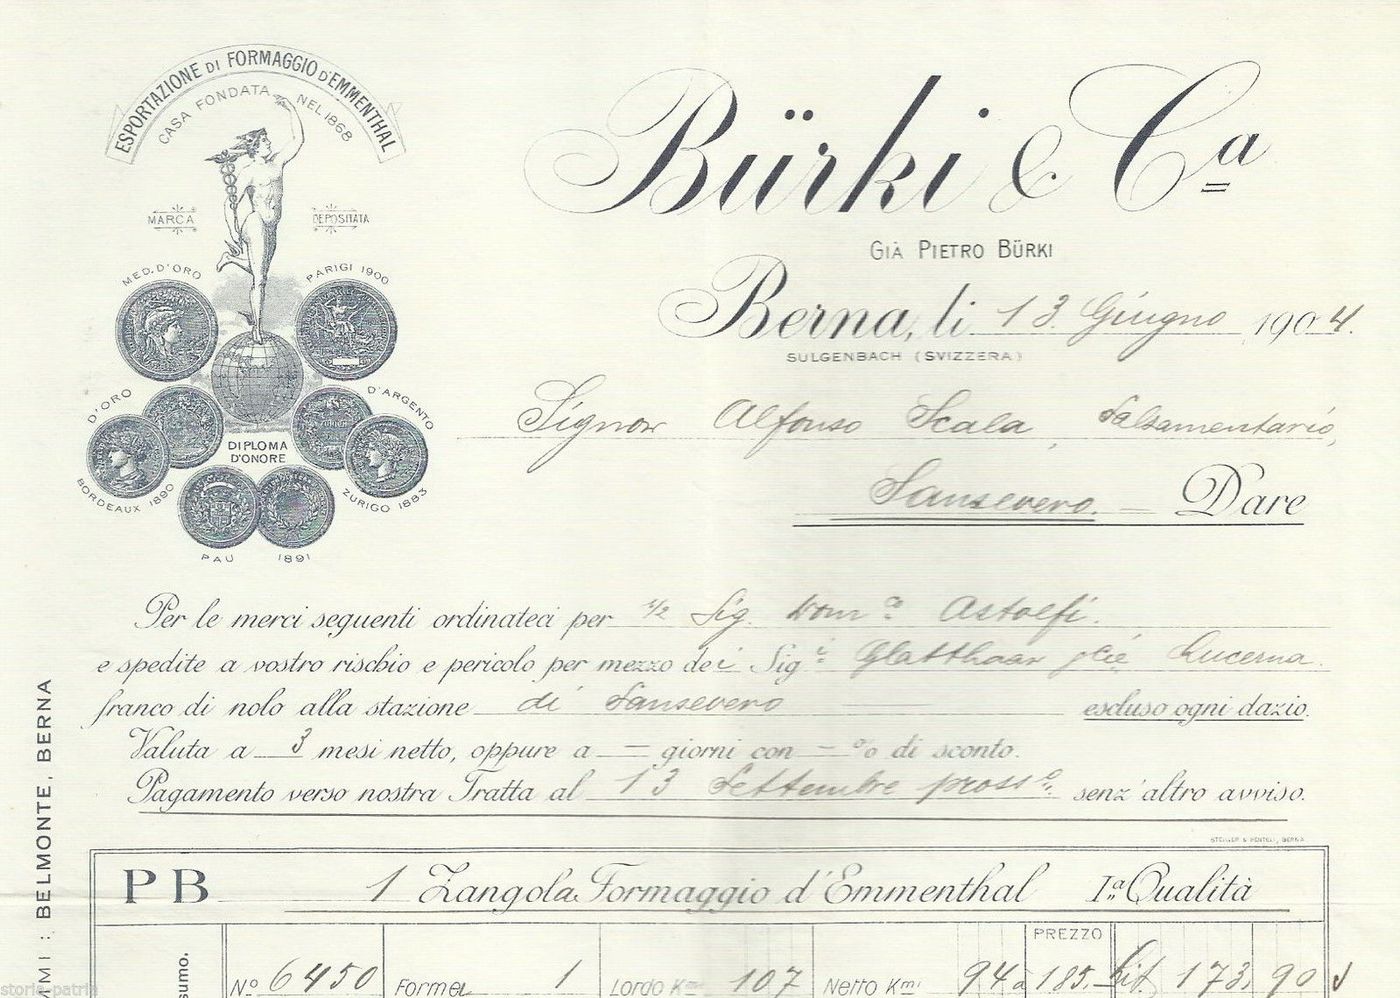 ESPORTAZIONE DI FORMAGGIO D'EMMENTHAL
CASA FONDATA NEL 1868
MARCA DEPOSITATA
MED. D'ORO PARIGI 1900
D'ORO D'ARGENTO
DIPLOMA
D'ONORE
BORDEAUX 1890 ZURIGO 1883
PAU 1891
Bürki & Ca
GIÀ PIETRO BÜRKI
Berna, li 13 Giugno 1904.
SULGENBACH (SVIZZERA)
Signor Alfonso Scala, Salsamentario,
Sansevero. — Dare
Per le merci seguenti ordinateci per 1/2 Sig. Domco Astolfi.
e spedite a vostro rischio e pericolo per mezzo dei Sigi Glatthaar Lucerna.
franco di nolo alla stazione di Sansevero — escluso ogni dazio.
Valuta a 3 mesi netto, oppure a — giorni con — % di sconto.
Pagamento verso nostra Tratta al 13 Settembre prosso. senz'altro avviso.
BELMONTE, BERNA
PB 1 Zangola Formaggio d'Emmenthal Ia Qualità
PREZZO
No 6450 Forme 1 Lordo Kmi 107 Netto Kmi 94 a 185.- Lit. 173,90
sumo.
storia-patria